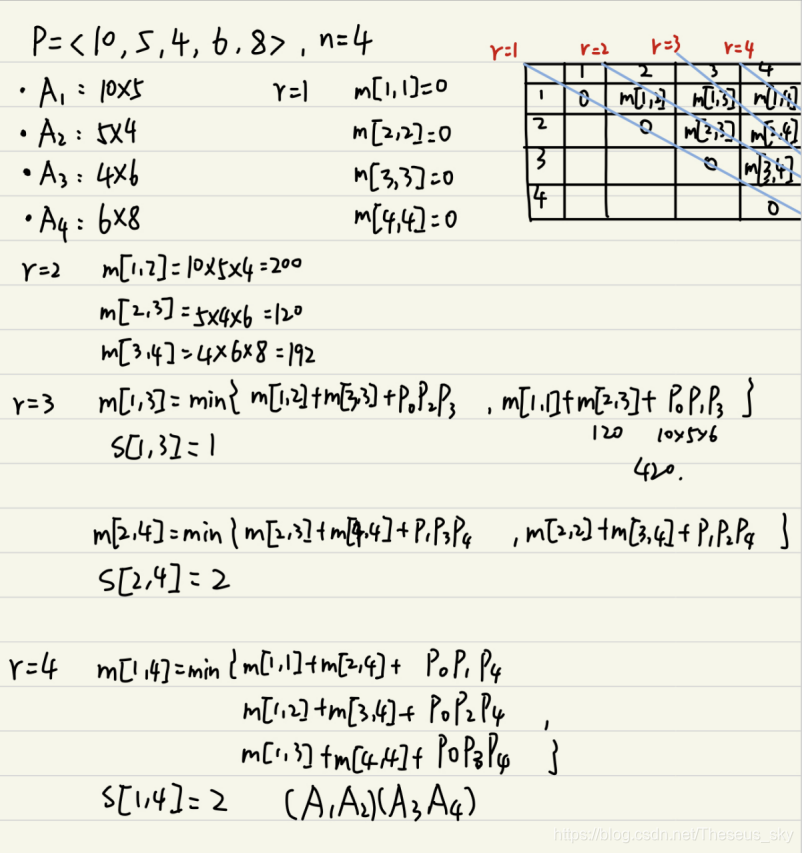 P=<10,5,4,6,8>, n=4
r=1 r=2 r=3 r=4
· A₁: 10×5 r=1 m[1,1]=0
· A₂: 5×4 m[2,2]=0
· A₃: 4×6 m[3,3]=0
· A₄: 6×8 m[4,4]=0
1 2 3 4
1 0 m[1,2] m[1,3] m[1,4]
2 0 m[2,3] m[2,4]
3 0 m[3,4]
4 0
r=2 m[1,2]=10×5×4=200
m[2,3]=5×4×6=120
m[3,4]=4×6×8=192
r=3 m[1,3]=min{ m[1,2]+m[3,3]+P₀P₂P₃ , m[1,1]+m[2,3]+ P₀P₁P₃ }
120 10×5×6
S[1,3]=1
420.
m[2,4]=min{ m[2,3]+m[4,4]+P₁P₃P₄ , m[2,2]+m[3,4]+P₁P₂P₄ }
S[2,4]=2
r=4 m[1,4]=min{ m[1,1]+m[2,4]+ P₀P₁P₄
m[1,2]+m[3,4]+ P₀P₂P₄ ,
m[1,3]+m[4,4]+ P₀P₃P₄ }
S[1,4]=2 (A₁A₂)(A₃A₄)
https://blog.csdn.net/Theseus_sky